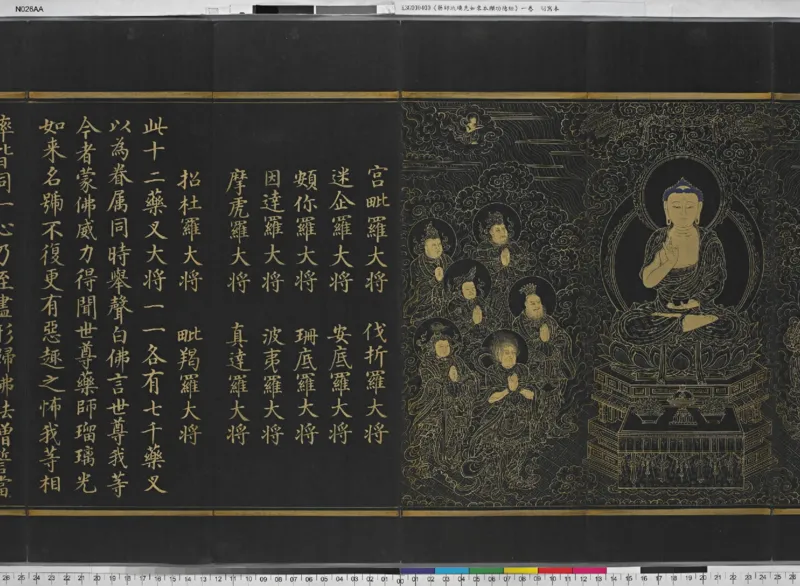 N026AA
《藥師琉璃光如來本願功德經》一卷
宫毗羅大将 伐折羅大将
迷企羅大将 安底羅大将
頞你羅大将 珊底羅大将
因達羅大将 波夷羅大将
摩虎羅大将 真達羅大将
招杜羅大将 毗羯羅大将
此十二藥叉大将一一各有七千藥叉
以為眷属同時舉聲白佛言世尊我等
今者蒙佛威力得聞世尊藥師瑠璃光
如来名號不復更有惡趣之怖我等相
率皆同一心乃至盡形歸佛法僧誓當